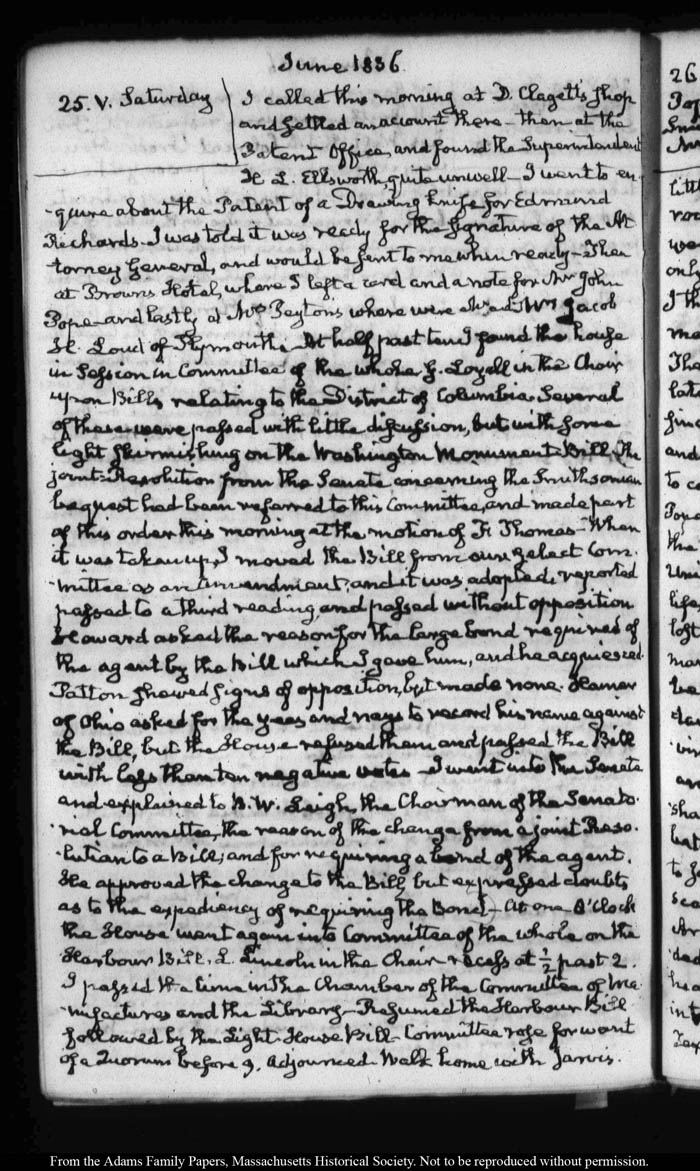 June 1836
25. V. Saturday
I called this morning at D. Clagett's shop
and settled an account there – then at the
Patent Office, and found the Superintendent
H. L. Ellsworth, quite unwell – I went to en-
-quire about the Patent of a Drawing knife for Edmund
Richards. I was told it was ready for the signature of the At
torney General, and would be sent to me when ready – Then
at Browns Hotel, where I left a card and a note for Mr John
Pope – and lastly at Mrs Peytons where were Mr and Mrs Jacob
H. Loud of Plymouth. At half past ten I found the house
in Session in Committee of the whole G. Loyall in the Chair
upon Bills relating to the District of Columbia. Several
of these were passed with little discussion, but with some
light skirmishing on the Washington Monument Bill. The
joint Resolution from the Senate concerning the Smithsonian
bequest had been referred to this Committee, and made part
of this order this morning at the motion of F. Thomas – When
it was taken up, I moved the Bill from our Select Com-
-mittee as an amendment, and it was adopted, reported
passed to a third reading, and passed without opposition
Howard asked the reason for the large bond required of
the agent by the Bill which I gave him, and he acquiesced.
Patton showed signs of opposition, but made none. Hamer
of Ohio asked for the yeas and nays to record his name against
the Bill, but the House refused them and passed the Bill
with less than ten negative votes – I went into the Senate
and explained to B. W. Leigh, the Chairman of the Senato-
-rial Committee, the reason of the change from a joint Reso-
-lution to a Bill; and for requiring a bond of the agent.
He approved the change to the Bill, but expressed doubts
as to the expediency of requiring the Bond – At one O'Clock
the House went again into Committee of the whole on the
Harbour Bill. L. Lincoln in the Chair recess at ½ past 2.
I passed the time in the Chamber of the Committee of Ma-
-nufactures and the Library – Resumed the Harbour Bill
followed by the Light-House Bill – Committee rose for want
of a Quorum before 9. adjourned. Walk home with Jarvis.
26
From the Adams Family Papers, Massachusetts Historical Society. Not to be reproduced without permission.